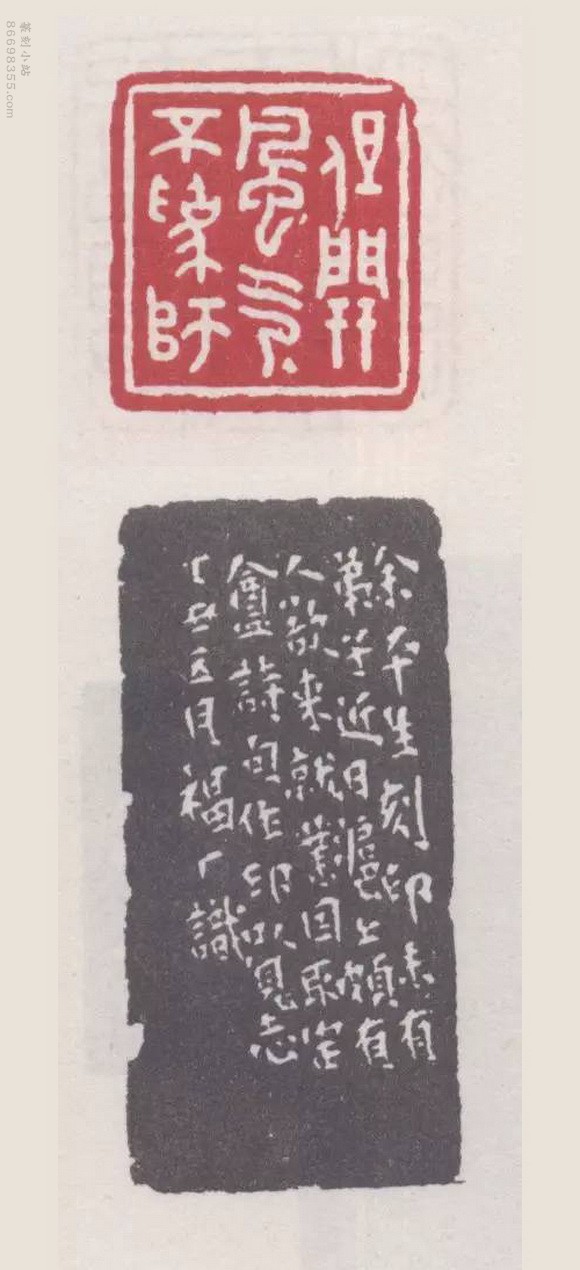 但開
風气
不為師
余平生刻印未有
弟子近日滬上頗有
人欲來就業因取定
盦詩句作印以見志
丁丑五月福厂識
篆刻小站
86698355.com